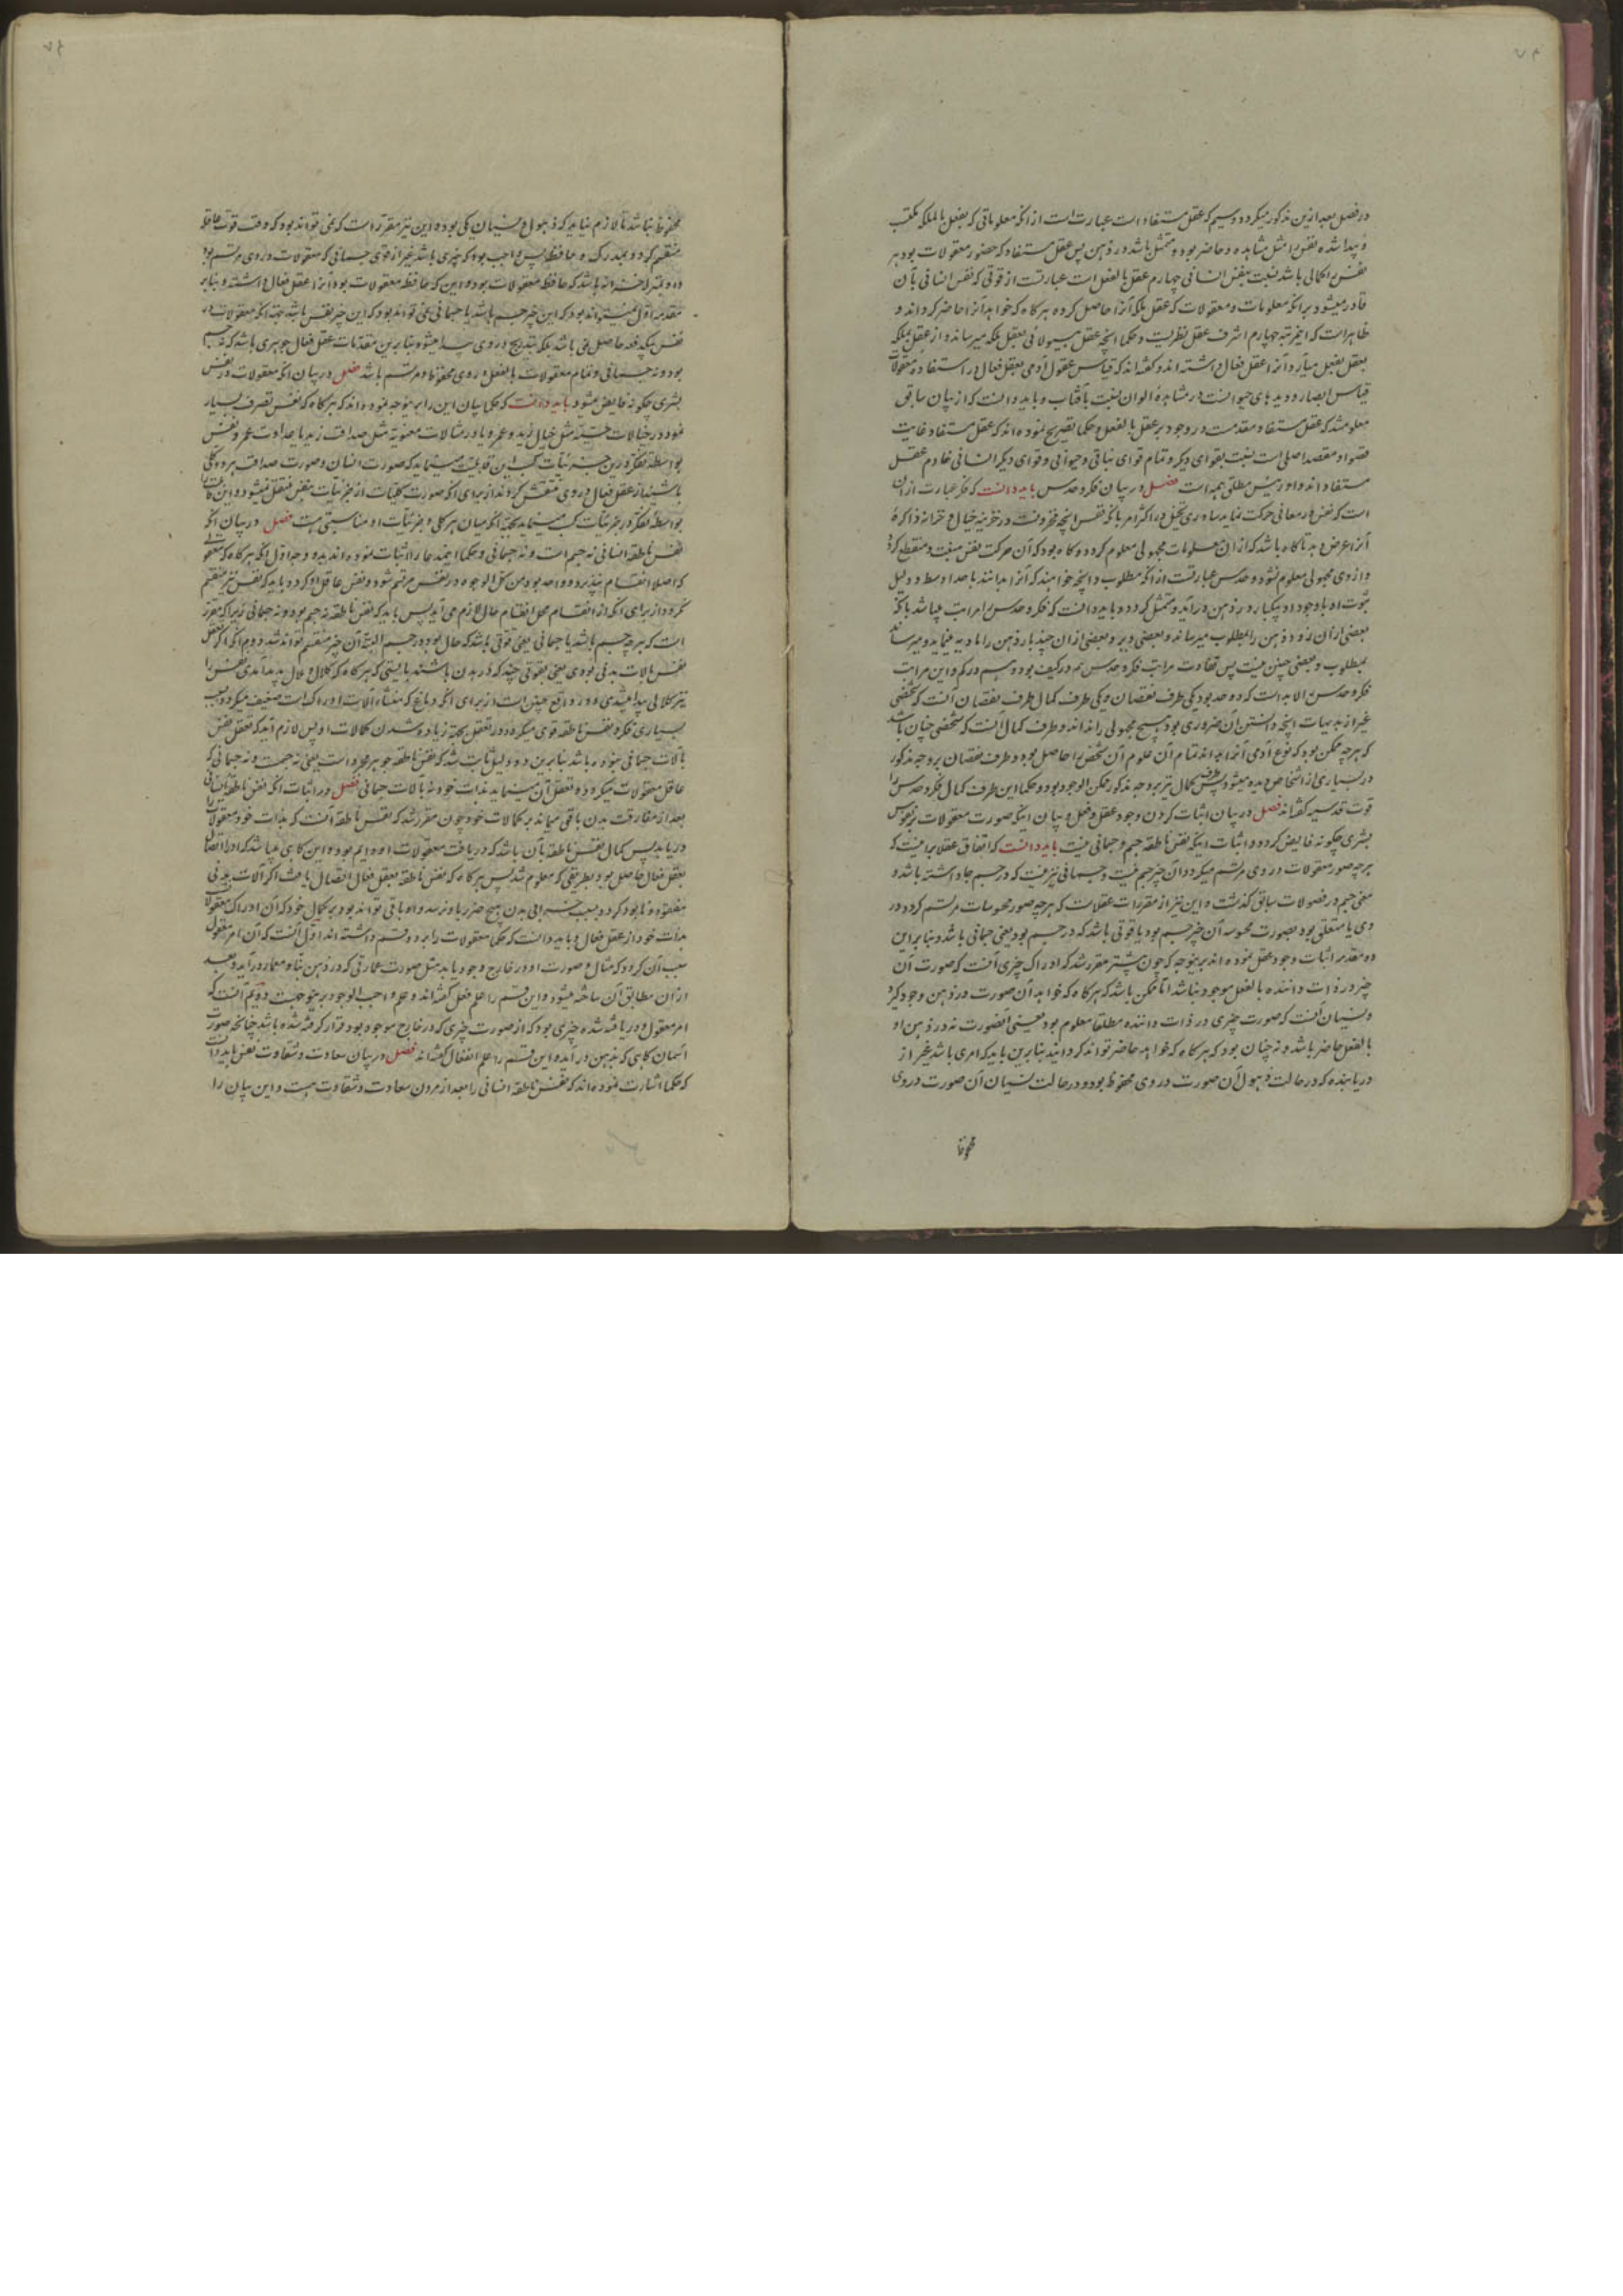 در فصل بعد ازین مذکور میگردد و سیم که عقل مستفاد است عبارت است از آنکه معلوماتی که بفعل یا الملکه مکتسب
و پیدا شده نفس را مثل مشاهده و حاضر بوده متمثل باشد در ذهن پس عقل مستفاد که حضور معقولات بود مر
نفس را کمالی باشد نسبت بنفس انسانی چهارم عقل بالفعل است عبارتست از قوتی که نفس انسانی بآن
قادر میشود بر آنکه معلومات و معقولات که عقل بلکه آنرا حاصل کرده هرگاه که خواهد آنرا حاضر گرداند و
ظاهر است که این مرتبه چهارم اشرف عقل نظریست و حکما آنچه عقل هیولانی بعقل بلکه میرساند و از عقل بملکه
بعقل بفعل میآرد آنرا عقل فعال داشته اند و گفته اند که قیاس عقول آدمی بعقل فعال در استفاده معقولات
قیاس ابصار و دیدهای حیوانست در مشاهده الوان نسبت بآفتاب و باید دانست که از بیان سابق
معلوم شد که عقل مستفاد مقدمست در وجود بر عقل بالفعل و حکما تصریح نموده اند که عقل مستفاد غایت
قصوا و مقصد اصلی است نسبت بقوای دیگر و تمام قوای نباتی و حیوانی و قوای دیگر انسانی خادم عقل
مستفاد اند و او رئیس مطلق همه است فصل در بیان فکر و حدس باید دانست که فکر عبارت از آن
است که نفس در معانی حرکت نماید بیاوری تخیل در اکثر امر بآنکه نفس آنچه مخزونست در خزینه خیال و خزانه ذاکره
آنرا عرض دهد تا گاه باشد که از آن معلومات مجهولی معلوم گردد و گاه بود که آن حرکت نفس منبت و منقطع گردد
و از وی مجهولی معلوم نشود و حدس عبارتست از آنکه مطلوب و آنچه خواهند که آنرا بدانند با حد اوسط و دلیل
ثبوت او با وجود او بیکبار در ذهن درآید و متمثل گردد و باید دانست که فکر و حدس را مراتب میباشد بآنکه
بعضی از آن زود ذهن را بمطلوب میرساند و بعضی دیر و بعضی از آن چند بار ذهن را مادیه مینماید و میرساند
بمطلوب و بعضی چنین نیست پس تفاوت مراتب فکر و حدس هم در کیف بود و هم در کم و این مراتب
فکر و حدس را لابد است که دو حد بود یکی طرف نقصان و یکی طرف کمال طرف نقصان آنست که شخصی
غیر از بدیهیات آنچه دانستن آن ضروری بود هیچ مجهولی را نداند و طرف کمال آنست که شخصی چنان باشد
که هرچه ممکن بود که نوع آدمی آنرا بداند تمام آن علوم آن شخص را حاصل بود و طرف نقصان بر وجه مذکور
در بسیاری از اشخاص دیده میشود پس طرف کمال نیز بر وجه مذکور ممکن الوجود بود و حکما این طرف کمال فکر و حدس را
قوت قدسیه گفته اند فصل در بیان اثبات کردن وجود عقل فعال و بیان آنکه صورت معقولات بر نفوس
بشری چگونه فایض گردد و اثبات اینکه نفس ناطقه جسم و جسمانی نیست باید دانست که اتفاق عقلا بر اینست که
هرچه صور معقولات در وی مرتسم میگردد آن چیز جسم نیست و جسمانی نیز نیست که در جسم جا داشته باشد و
معنی جسم در فصولات سابق گذشت و این نیز از مقررات عقلاست که هرچه صور محسوسات مرتسم گردد در
وی یا متعلق بود بصورت محسوسه آن چیز جسم بود یا قوتی باشد که در جسم بود یعنی جسمانی باشد و بنا بر این
دو مقدمه اثبات وجود عقل نموده اند برینوجه که چون پیشتر مقرر شد که ادراک چیزی آنست که صورت آن
چیز در ذات داننده بالفعل موجود نباشد اما ممکن باشد که هرگاه که خواهد آن صورت در ذهن وجود گیرد
و نسیان آنست که صورت چیزی در ذات داننده مطلقا معلوم بود یعنی آنصورت نه در ذهن او
بالفعل حاضر باشد و نه چنان بود که هرگاه که خواهد حاضر تواند گردانید بنا برین باید که امری باشد غیر از
دریابنده که در حالت ذهول آن صورت در وی محفوظ بود و در حالت نسیان آن صورت در وی
محفوظ
محفوظ نباشد تا لازم نیاید که ذهول و نسیان یکی بود و این نیز مقرر است که نمی تواند بود که وقت قوت عاقله
منقسم گردد بمدرکه و حافظه پس واجب بود که چیزی باشد غیر از قوی جسمانی که معقولات در وی مرتسم بود
و او بمنزله خزانه باشد که حافظ معقولات بود و این که حافظ معقولات بود آنرا عقل فعال داشته و بنا بر
مقدمه اول نمیتواند بود که این چیز جسم باشد یا جسمانی و نمی تواند بود که این چیز نفس باشد بجهة آنکه معقولات در
نفس بیکدفعه حاصل نمی باشد بلکه بتدریج در وی پیدا میشود و بنا برین مقدمات عقل فعال جوهری باشد که نه جسم
بود و نه جسمانی و تمام معقولات بالفعل در وی محفوظ و مرتسم باشد فصل در بیان آنکه معقولات در نفس
بشری چگونه فایض میشود باید دانست که حکما بیان این را برینوجه نموده اند که هرگاه که نفس تصرف بسیار
نمود در خیالات حسیه مثل خیال زید و عمرو یا در مثالات معنویه مثل صداقت زید یا عداوت عمرو نفس
بواسطه تفکر درین جزئیات کسب این قابلیت مینماید که صورت انسان و صورت صداقت هر دو کلی
باشند از عقل فعال در وی منتقش گردند از برای آنکه صورت کلیات از جزئیات بنفس منتقل نمیشود و این
بواسطه تفکر در جزئیات کسب مینماید بجهة آنکه میان هر کلی و جزئیات او مناسبتی هست فصل در بیان آنکه
نفس ناطقه انسانی نه جسم است و نه جسمانی و حکما اینمدعا را اثبات نموده اند بدو وجه اول آنکه هرگاه که معقولی
که اصلا انقسام نپذیرد و واحد بود من کل الوجوه در نفس مرتسم شود و نفس عاقل او گردد باید که نفس نیز منقسم
نگردد از برای آنکه از انقسام محل انقسام حال لازم می آید پس باید که نفس ناطقه نه جسم بود و نه جسمانی زیرا که مقرر
است که هرچه جسم باشد یا جسمانی یعنی قوتی باشد که حال بود در جسم البته آن چیز منقسم تواند شد دوم آنکه اگر تعقل
نفس بآلات بدنی بودی یعنی بقوتی چند که در بدن باشند بایستی که هرگاه که کلال و ملال پدید آمدی نفس را
نیز کلالی پیدا میشدی و در واقع چنین است از برای آنکه دماغ که منشاء آلات ادراک است ضعیف میگردد بسبب
بسیاری فکر و نفس ناطقه قوی میگردد در تعقل بجهة زیاده شدن کمالات او پس لازم آید که تعقل نفس
بآلات جسمانی نبوده باشد بنا برین دو دلیل ثابت شد که نفس ناطقه جوهر مجرد است یعنی نه جسمست و نه جسمانی که
عاقل معقولات میگردد و تعقل آن مینماید بذات خود نه بآلات جسمانی فصل در اثبات آنکه نفس ناطقه انسانی
بعد از مفارقت بدن باقی میماند بر کمالات خود چون مقرر شد که نفس ناطقه آنست که بذات خود معقولات را
دریابد پس کمال نفس ناطقه بآن باشد که دریافت معقولات او دایم بود و این گاهی میباشد که او را اتصال
بعقل فعال حاصل بود بطریقی که معلوم شد پس هرگاه که نفس ناطقه بعقل فعال اتصال یافت اگر آلات بدنی
مفقود و نابود گردد بسبب خرابی بدن هیچ ضرر باو نرسد و او باقی تواند بود بر کمال خود که آن ادراک معقولات
بذات خود از عقل فعال و باید دانست که حکما معقولات را بر دو قسم داشته اند اول آنست که آن امر معقول
سبب آن گردد که مثال و صورت او در خارج وجود یابد مثل صورت عمارتی که در ذهن بنا و معمار درآید و بعد
از آن مطابق آن ساخته میشود و این قسم را علم فعلی گفته اند و علم واجب الوجود برینوجه است دویم آنست که
امر معقول و دریافته شده چیزی بود که از صورت چیزی که در خارج موجود بود قرار گرفته شده باشد چنانچه صورت
آسمان گاهی که بذهن درآید و این قسم را علم انفعالی گفته اند فصل در بیان سعادت و شقاوت نفس باید دانست
که حکما اشارت نموده اند که نفس ناطقه انسانی را بعد از مردن سعادت و شقاوت هست و این بیان را